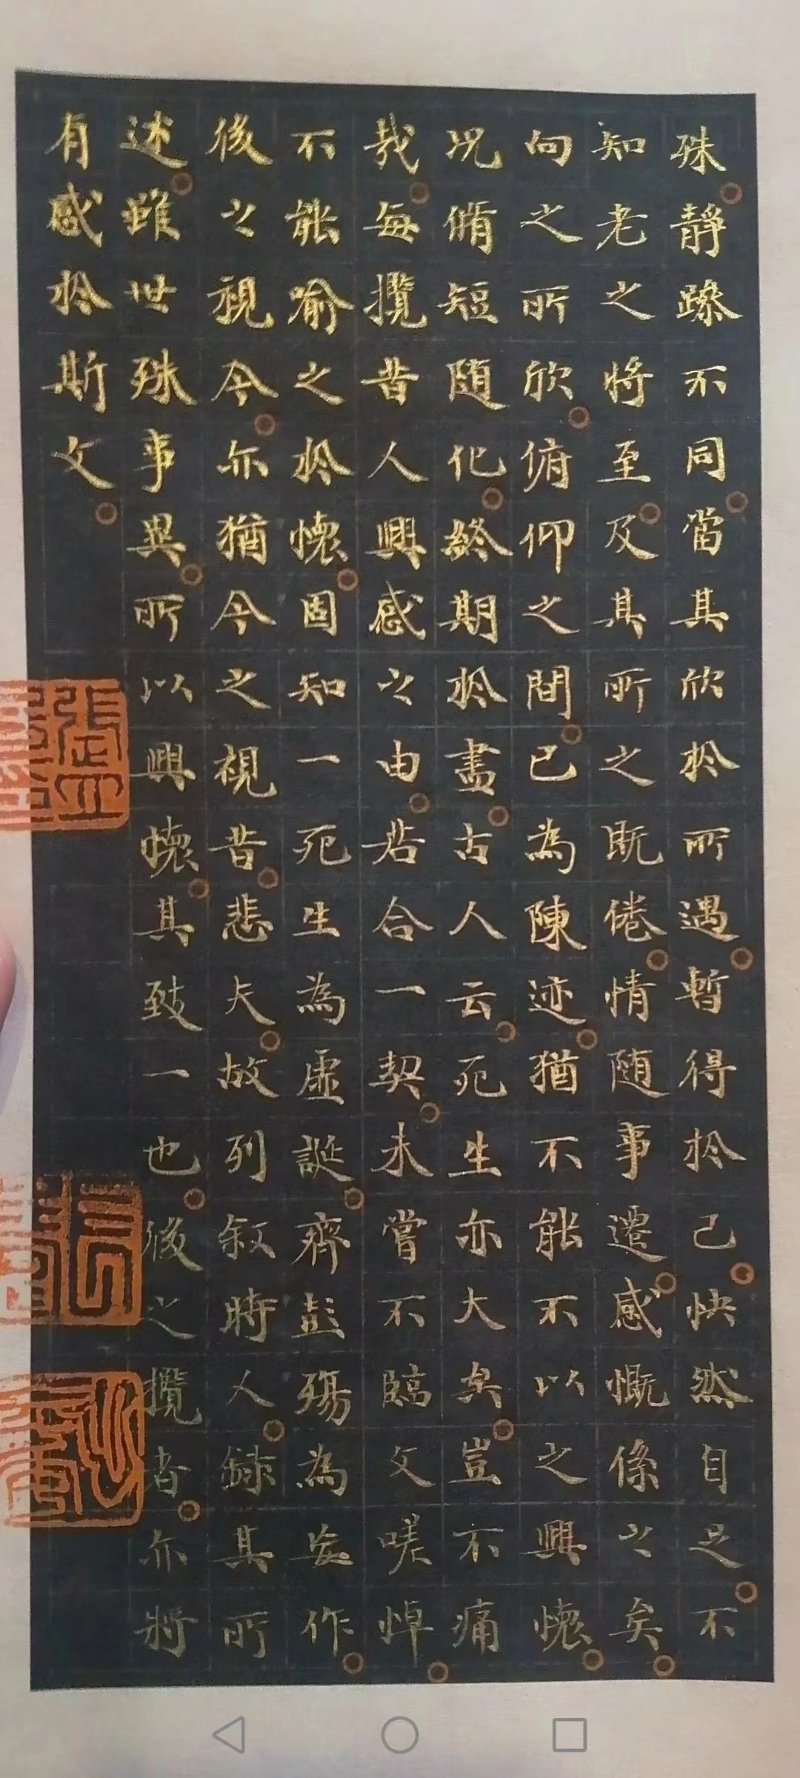 殊靜躁不同當其欣於所遇暫得於己快然自足不
知老之將至及其所之既倦情隨事遷感慨係之矣
向之所欣俯仰之間已為陳迹猶不能不以之興懷
況脩短隨化終期於盡古人云死生亦大矣豈不痛
哉每攬昔人興感之由若合一契未嘗不臨文嗟悼
不能喻之於懷固知一死生為虛誕齊彭殤為妄作
後之視今亦猶今之視昔悲夫故列敘時人錄其所
述雖世殊事異所以興懷其致一也後之攬者亦將
有感於斯文